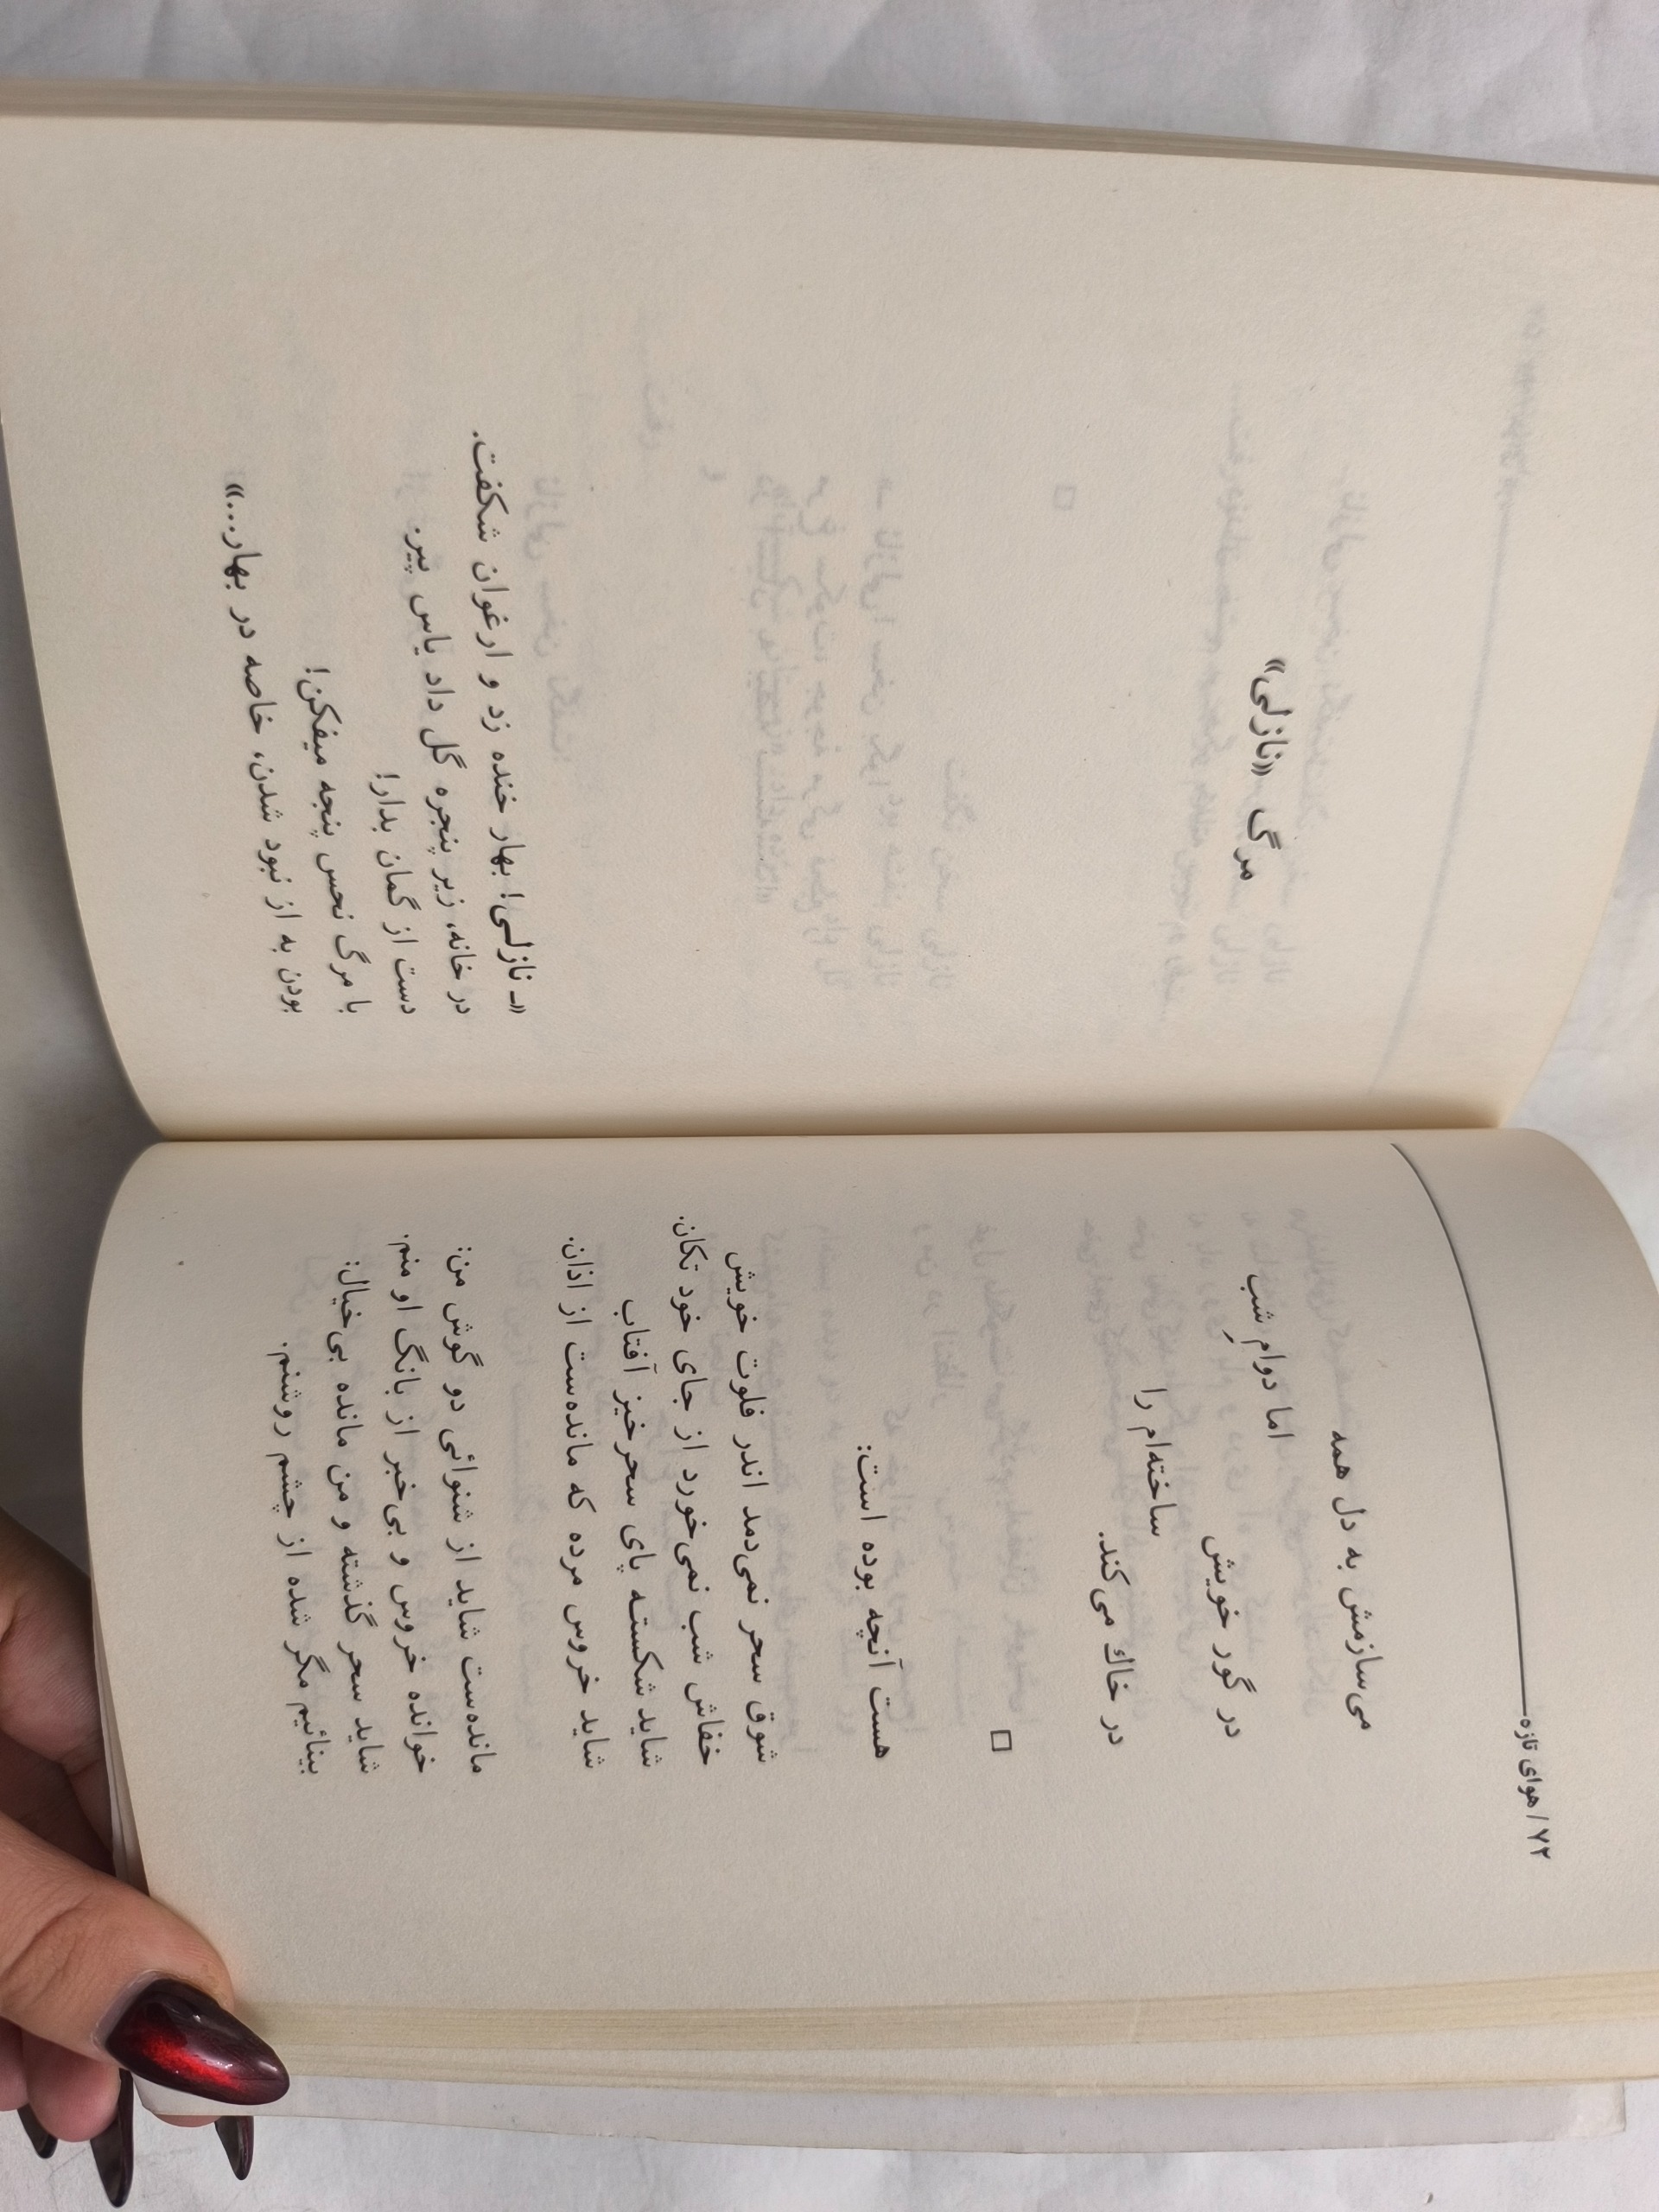 ۷۲ / هوای تازه
می‌سازمش به دل همه
اما دوامِ شب
در گور خویش
ساخته‌ام را
در خاك می‌کند.
هست آنچه بوده است:
شوق سحر نمی‌دمد اندر فلوت خویش
خفاش شب نمی‌خورد از جای خود تکان.
شاید شکسته پای سحرخیز آفتاب
شاید خروس مرده که مانده‌ست از اذان.
مانده‌ست شاید از شنوائی دو گوش من:
خوانده خروس و بی‌خبر از بانگ او منم.
شاید سحر گذشته و من مانده بی‌خیال:
بینائیم مگر شده از چشم روشنم.
مرگ «نازلی»
«ـ نازلی! بهار خنده زد و ارغوان شکفت.
در خانه، زیر پنجره گل داد یاس پیر.
دست از گمان بدار!
با مرگ نحس پنجه میفکن!
بودن به از نبود شدن، خاصه در بهار...»